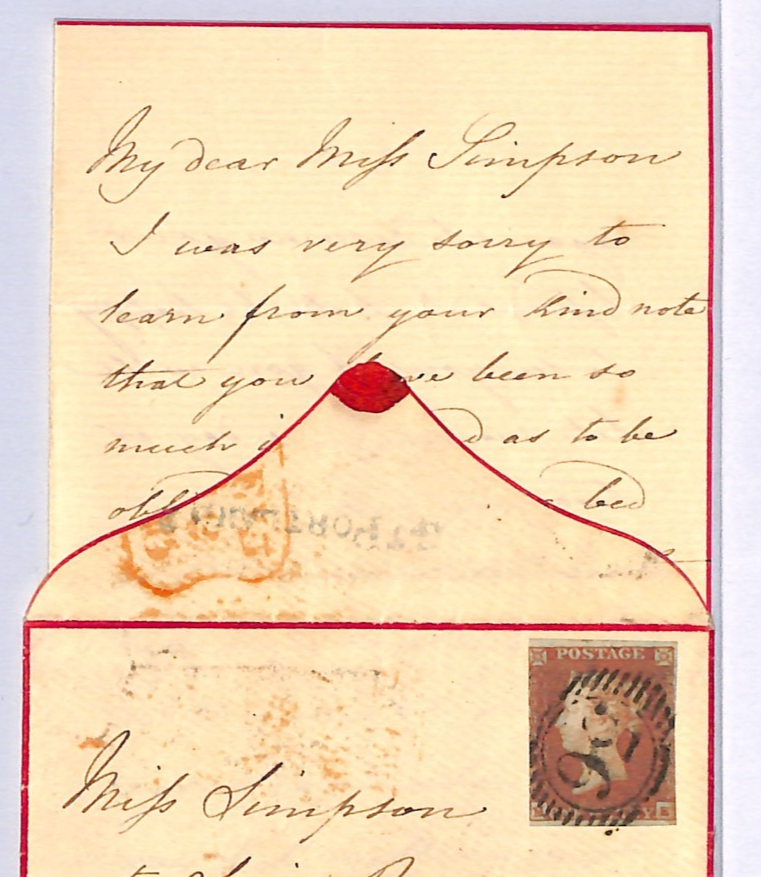 My dear Miss Simpson
I was very sorry to
learn from your kind note
that you have been so
much as to be
bed
POSTAGE
Miss Simpson